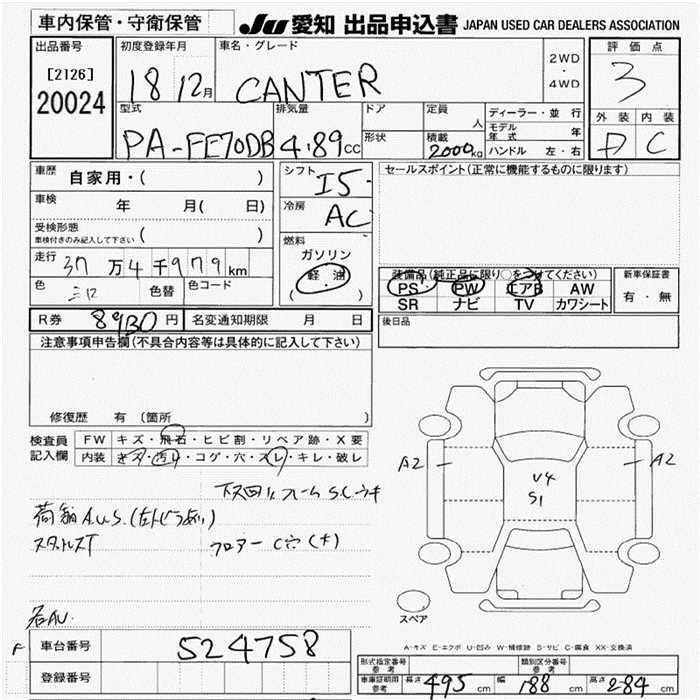 車内保管・守衛保管
JU 愛知 出品申込書 JAPAN USED CAR DEALERS ASSOCIATION
出品番号 初度登録年月 車名・グレード 2WD・4WD 評価点
[2126] 18 12月 CANTER 3
20024
型式 排気量 ドア 定員 人 ディーラー・並行 外装 内装
PA-FE70DB 4.89cc 形状 積載 2000kg モデル年式 年 D C
ハンドル 左・右
車歴 自家用・( ) シフト I5 セールスポイント(正常に機能するものに限ります)
車検 年 月( 日) 冷房 AC
受検形態
車検付きのみ記入して下さい ( ) 燃料
走行 37万4千979km ガソリン
色 色替 色コード 軽油 ( )
装備品(純正品に限り○をつけてください) 新車保証書
PS PW エアB AW 有・無
SR ナビ TV カワシート
R券 8930円 名変通知期限 月 日 後日品
注意事項申告欄(不具合内容等は具体的に記入して下さい)
修復歴 有(箇所 )
検査員 FW キズ・飛石・ヒビ割・リペア跡・X要
記入欄 内装 キズ・汚れ・コゲ・穴・スレ・キレ・破レ
A2 A2
U4
S1
スタッドレスT フロアーC穴(大)
スペア
A-キズ E-エクボ U-凹み W-補修跡 S-サビ C-腐食 XX-交換済
F 車台番号 524758
登録番号
形式指定番号 参考 類別区分番号 参考
車庫証明用 参考 長さ 495cm 幅 188cm 高さ 284cm